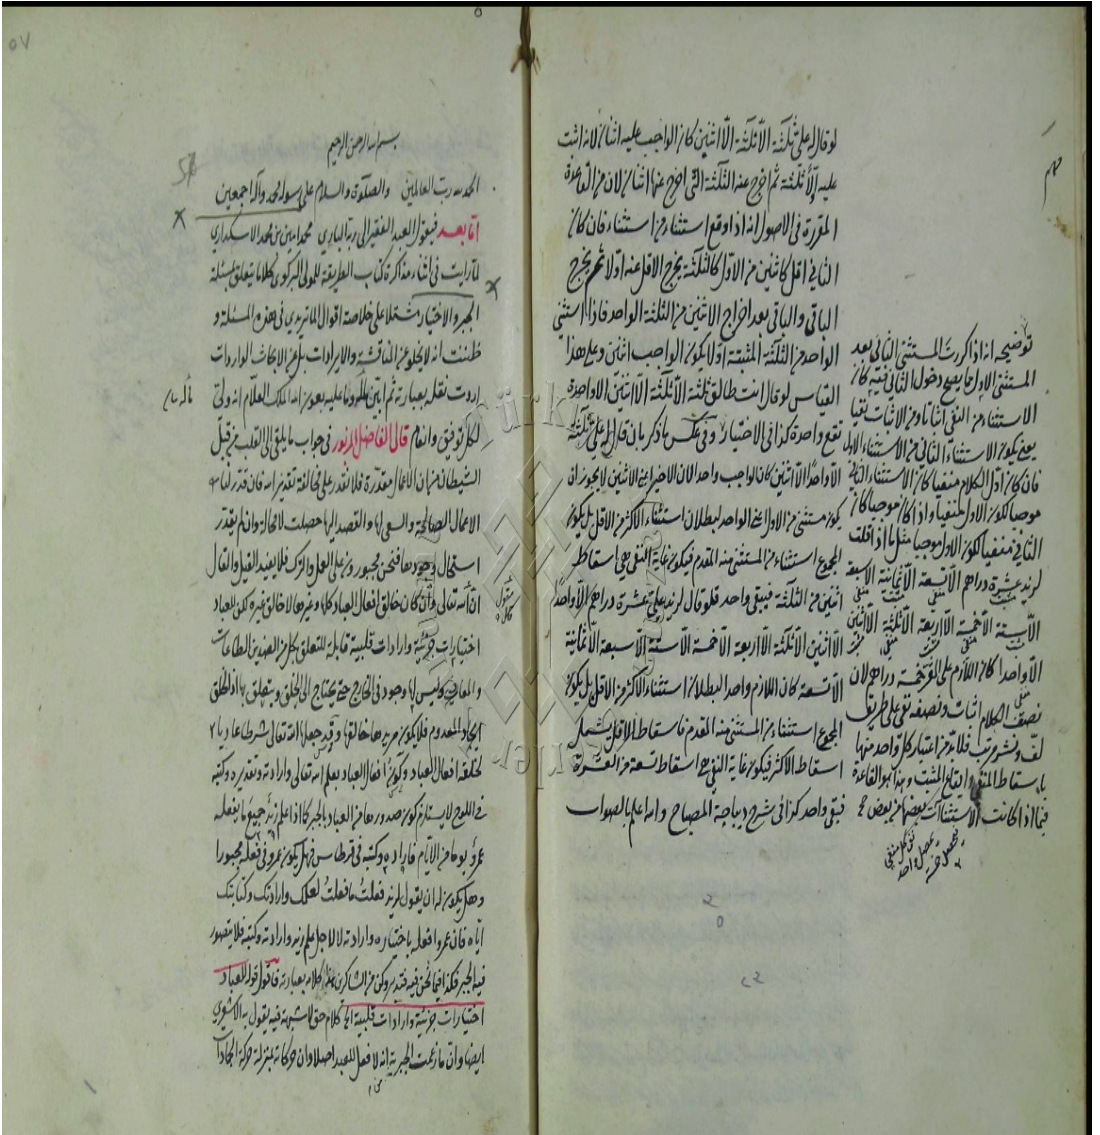 لو قال له على ثلثة الا ثلثة الا اثنين كان الواجب عليه اثنان لانه اثبت
عليه الا ثلثة ثم اخرج عنه الثلثة التى اخرج عنها اثنان لان من القاعدة
المقررة فى الاصول انه اذا وقع استثناء من استثناء فان كان
الثانى اقل كاثنين من الاول كالثلثة يخرج الاقل عنه اولا ثم يخرج
الباقى والباقى بعد اخراج الاثنين من الثلثة الواحد فاذا استثنى
الواحد من الثلثة المثبتة اولا يكون الواجب اثنين وعلى هذا
القياس لو قال انت طالق ثلثة الا ثلثة الا اثنين الا واحدة
تقع واحدة كذا فى الاختيار وفى عكس ما ذكر بان قال له على ثلثة
الا واحدا الا اثنين كان الواجب واحدا لان الاخير اعنى الاثنين لا يجوز ان
يكون مستثنى من الاول اعنى الواحد لبطلان استثناء الاكثر من الاقل بل يكون
المجموع استثناء من المستثنى منه المقدم فيكون غاية النفى هى اسقاط
اثنين من الثلثة فيبقى واحد فلو قال لزيد على عشرة دراهم الا واحدا
الا اثنين الا ثلثة الا اربعة الا خمسة الا ستة الا سبعة الا ثمانية
الا تسعة كان اللازم واحدا لبطلان استثناء الاكثر من الاقل بل يكون
المجموع استثناء من المستثنى منه المقدم فاسقاط الاقل يشمل
اسقاط الاكثر فيكون غاية النفى هى اسقاط تسعة من العشرة
فبقى واحد كذا فى شرح ديباجة المصباح والله اعلم بالصواب
توضيحه انه اذا كررت المستثنى الثانى بعد
المستثنى الاول مما يصح دخول الثانى فيه كان
الاستثناء من النفى اثباتا ومن الاثبات نفيا
يعنى يكون الاستثناء الثانى من الاستثناء الاول
فان كان اول الكلام منفيا كان الاستثناء الثانى
موجبا لكون الاول منفيا واذا كان موجبا كان
الثانى منفيا لكون الاول موجبا مثل ما اذا قلت
لزيد عشرة دراهم الا تسعة الا ثمانية الا سبعة
الا ستة الا خمسة الا اربعة الا ثلثة الا اثنين
الا واحدا كان اللازم على المقر خمسة دراهم لان
نصف الكلام اثبات ونصفه نفى على طريق
لف ونشر مرتب فلا بد من اعتبار كل واحد منها
باسقاط المنفى وايقاع المثبت وهذا هو القاعدة
فيما اذا كانت الاستثناآت بعضها من بعض
بسم الله الرحمن الرحيم
الحمد لله رب العالمين والصلوة والسلام على رسوله محمد وآله اجمعين
اما بعد فيقول العبد الفقير الى ربه البارى محمد امين بن محمد الاسكدارى
لما رايت فى اثناء مذاكرة كتاب الطريقة للمولى البركوى كلاما يتعلق بمسئلة
الجبر والاختيار مشتملا على خلاصة اقوال الماتريدى فى هذه المسئلة و
ظننت انه لا يخلو عن المناقشة والايرادات بل عن الابحاث الواردات
اردت نقله بعبارته ثم ابين ما له وما عليه بعون الله الملك العلام انه ولى
لكل توفيق وانعام قال الفاضل المزبور فى جواب ما يلقى الى القلب من قبل
الشيطان من ان الاعمال مقدرة فلا نقدر على مخالفة تقدير الله فان قدر لنا
الاعمال الصالحة والسعى لها والقصد اليها حصلت لا محالة وان لم يقدر
استحال وجودها فنحن مجبورون على العمل والترك فلا يفيد القيل والقال
ان الله تعالى وان كان خالق افعال العباد كلها وغيرها لا خالق غيره لكن للعباد
اختيارات جزئية وارادات قلبية قابلة للتعلق بكل من الضدين الطاعات
والمعاصى وليس لها وجود فى الخارج حتى يحتاج الى الخلق ويتعلق بها اذ الخلق
ايجاد المعدوم فلا يكون مريدها خالقها وقد جعلها الله تعالى شرطا عاديا
لخلقه افعال العباد وكون افعال العباد بعلم الله تعالى وارادته وتقديره وكتبه
فى اللوح لا يستلزم كون صدورها من العباد بالجبر كما اذا علم زيد جميع ما يفعله
عمرو يوما من الايام فاراده وكتبه فى قرطاس فهل يكون عمرو فى فعله مجبورا
وهل يكون له ان يقول لزيد فعلت ما فعلت لعلمك وارادتك وكتابتك
اياه فان عمروا فعل باختياره وارادته لا لاجل علم زيد وارادته وكتبه فلا يتصور
فيه الجبر فكذا فيما نحن فيه فتدبر وكن من الشاكرين هذا كلامه بعبارته فاقول قوله للعباد
اختيارات جزئية وارادات قلبية الخ كلام حق لا شبهة فيه يقول به الاشعرى
ايضا وان ما زعمت الجبرية انه لا فعل للعبد اصلا وان حركاته بمنزلة حركة الجمادات